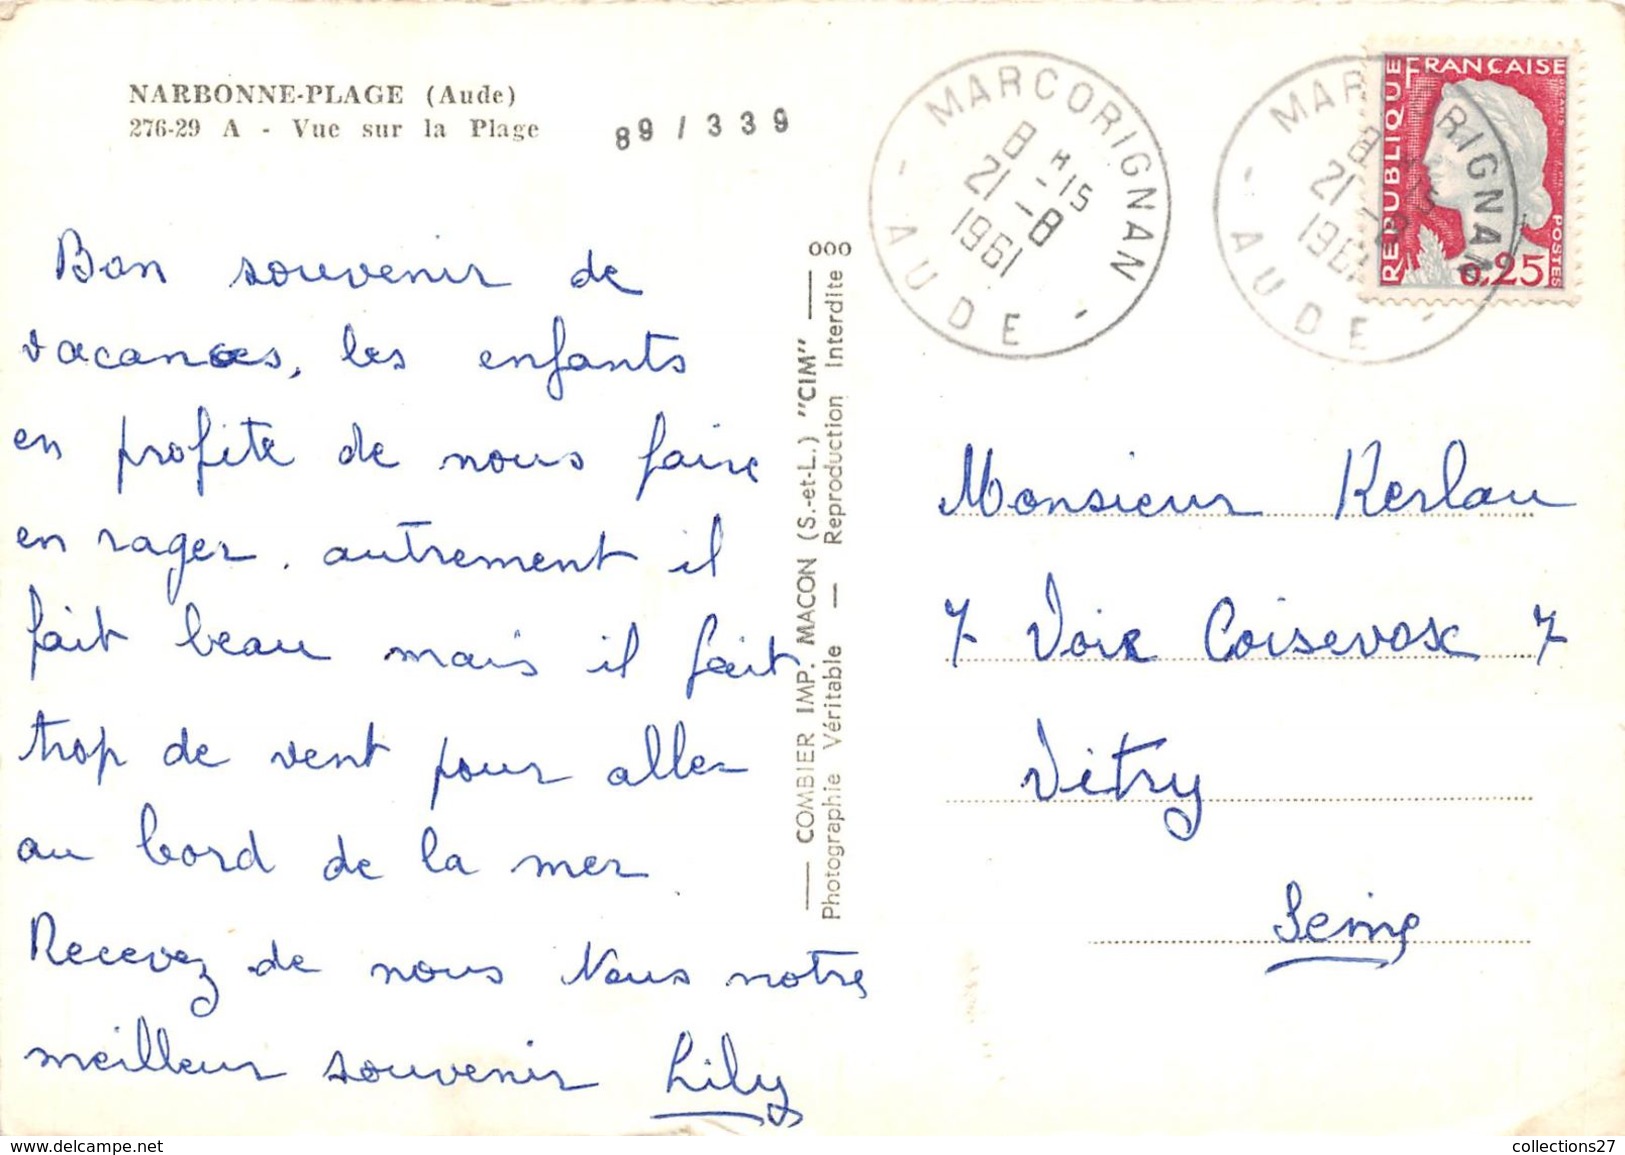 NARBONNE-PLAGE (Aude)
276-29 A - Vue sur la Plage
89/339
Bon souvenir de
vacances, les enfants
en profite de nous faire
en rager. autrement il
fait beau mais il fait
trop de vent pour aller
au bord de la mer.
Recevez de nous tous notre
meilleur souvenir Lily
COMBIER IMP. MACON (S.-et-L.) "CIM"
Photographie Véritable — Reproduction Interdite
ooo
MARCORIGNAN
8 H 15
21 - 8
1961
- AUDE -
MARCORIGNAN
8 H 15
21 - 8
1961
- AUDE -
REPUBLIQUE FRANÇAISE
DECARIS
POSTES
0,25
Monsieur Kerlau
7 Voie Coisevox 7
Vitry
Seine
www.delcampe.net
collections27